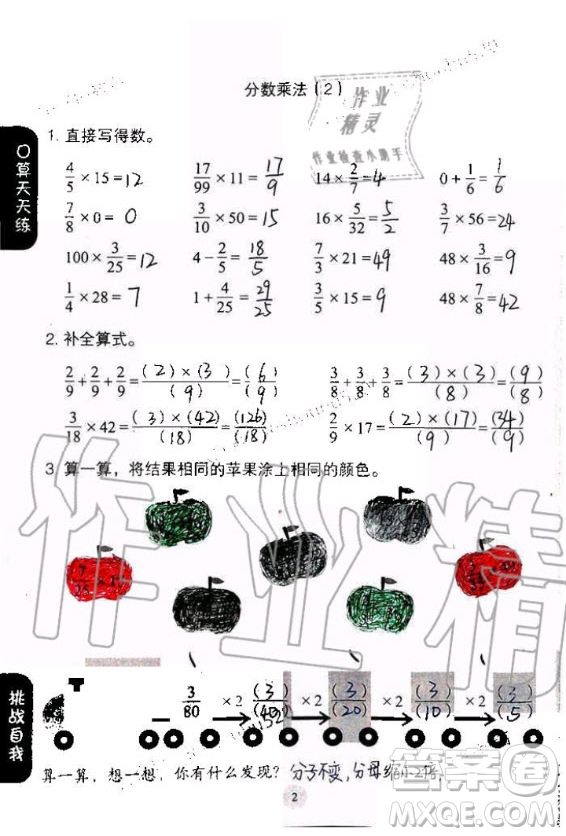 分数乘法(2)
作业
精灵
作业检查小助手
口算天天练
1. 直接写得数。
4/5 ×15=12 17/99 ×11=17/9 14× 2/7 =4 0+ 1/6 = 1/6
7/8 ×0=0 3/10 ×50=15 16× 5/32 = 5/2 3/7 ×56=24
100× 3/25 =12 4- 2/5 = 18/5 7/3 ×21=49 48× 3/16 =9
1/4 ×28=7 1+ 4/25 = 29/25 3/5 ×15=9 48× 7/8 =42
2. 补全算式。
2/9 + 2/9 + 2/9 = (2)×(3)/(9) = (6)/(9) 3/8 + 3/8 + 3/8 = (3)×(3)/(8) = (9)/(8)
3/18 ×42= (3)×(42)/(18) = (126)/(18) 2/9 ×17= (2)×(17)/(9) = (34)/(9)
3. 算一算，将结果相同的苹果涂上相同的颜色。
作业精
挑战自我
3/80 ×2 (3)/(40) ×2 (3)/(20) ×2 (3)/(10) ×2 (3)/(5)
算一算，想一想，你有什么发现？分子不变，分母缩小2倍，
2
答案圈
MXQE.COM